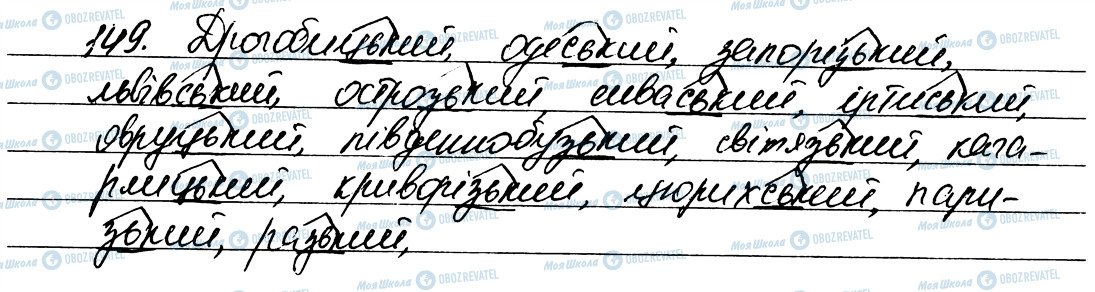 149. Дрогобицький, одеський, запорізький,
львівський, острозький, сиваський, іртиський,
овруцький, південнобузький, світязький, кага-
рлицький, криворізький, цюрихський, пари-
зький, разький,